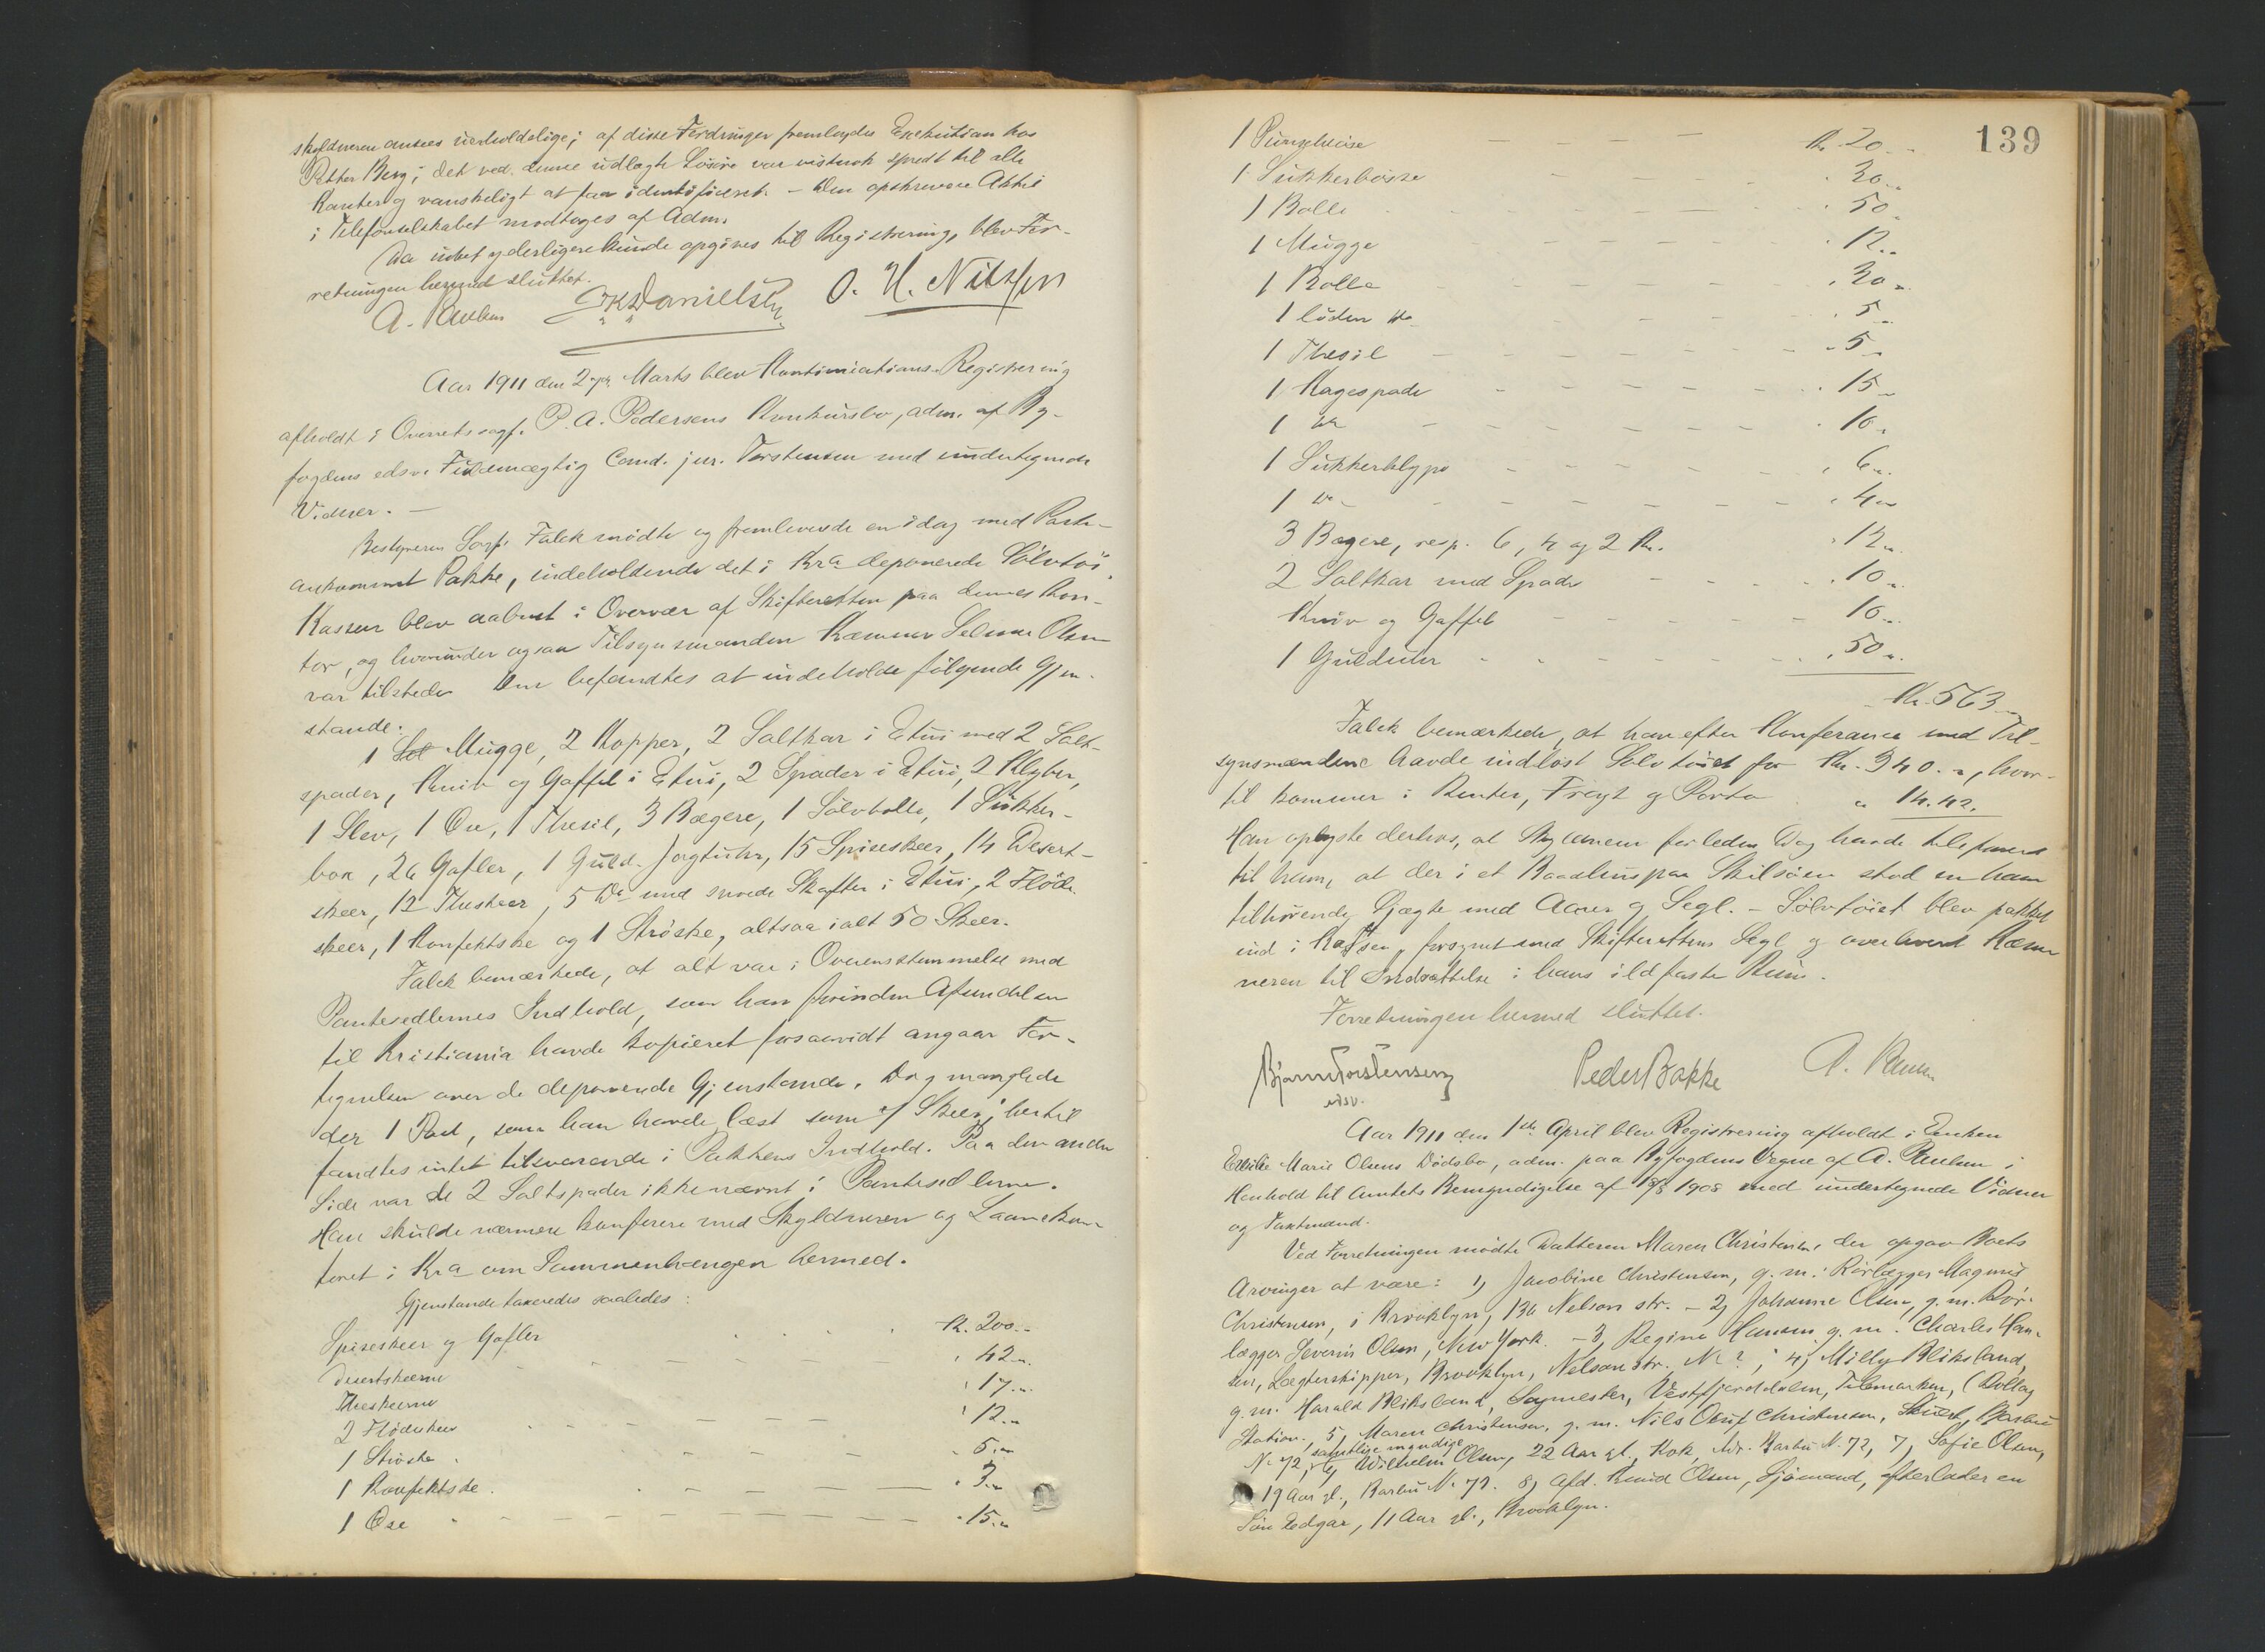 skyldneren ansees uerholdelige; af disse Fordringer fremlagdes Exekution hos
Petter Berg; det ved denne udlagte Løsøre var vistnok spredt til alle
Kanter og vanskeligt at faa identificeret. – Den opskrevne Aktie
i Telefonselskabet modtoges af Adm.
Da intet yderligere kunde opgives til Registrering, blev For-
retningen hermed sluttet.
A. Paulsen O. H. Nilssen
Aar 1911 den 2. Marts blev Kontinuations-Registrering
afholdt i Overretssagf. P. A. Pedersens Konkursbo, adm. af By-
fogdens edsv. Fuldmægtig Cand. jur. Torstensen med undertegnede
Vidner. –
Bestyreren Sagf. Falck mødte og fremleverede en idag med Post-
ankommet Pakke, indeholdende det i Kra deponerede Sølvtøi.
Kassen blev aabnet i Overvær af Skifteretten paa dennes Kon-
tor, og hvorunder ogsaa Tilsynsmanden Kæmner Olsen
var tilstede. Den befandtes at indeholde følgende Gjen-
stande:
1 Mugge, 2 Kopper, 2 Saltkar i Etui med 2 Salt-
spader, Kniv og Gaffel i Etui, 2 Spader i Etui, 2 Klyber,
1 Slev, 1 Øse, 1 Thesil, 3 Bægere, 1 Sølvbolle, 1 Sukker-
box, 26 Gafler, 1 Guld- Jagtuhr, 15 Spiseskeer, 14 Desert-
skeer, 12 Theskeer, 5 Do med snoede Skafter i Etui, 2 Fløde-
skeer, 1 Konfektske og 1 Strøske, altsaa ialt 50 Skeer.
Falck bemærkede, at alt var i Overensstemmelse med
Pantesedlernes Indhold, som han forinden Afsendelsen
til Kristiania havde kopieret forsaavidt angaar For-
tegnelsen over de deponerede Gjenstande. Dog manglede
der 1 Post, som han havde læst som Skeer; hertil
fandtes intet tilsvarende i Pakkens Indhold. Paa den anden
Side var de 2 Saltspader ikke nævnt i Pantesedlerne.
Han skulde nærmere konferere med Skyldneren og Laanekon-
toret i Kra om Sammenhængen hermed.
Gjenstande taxeredes saaledes:
Spiseskeer og Gafler Kr. 200.-
Desertskeerne " 42.-
Theskeerne " 17.-
2 Flødeskeer " 12.-
1 Strøske " 5.-
1 Konfektske " 3.-
1 Øse " 15.-
139
1 Punscheøse Kr. 20.-
1 Sukkerbøsse " 30.-
1 Bolle " 50.-
1 Mugge " 12.-
1 Bolle " 30.-
1 liden do " 5.-
1 Thesil " 5.-
1 Kagespade " 15.-
1 do " 10.-
1 Sukkerklype " 6.-
1 do " 4.-
3 Bægere, resp. 6, 4 og 2 Kr. " 12.-
2 Saltkar med Spade " 10.-
Kniv og Gaffel " 10.-
1 Guldur " 50.-
Kr. 563.-
Falck bemærkede, at han efter Konferance med Til-
synsmændene havde indløst Sølvtøiet for Kr. 340.-, hvor-
til kommer i Renter, Fragt og Porto " 14.42.
Han oplyste derhos, at Skyldneren forleden Dag havde telefoneret
til ham, at der i et Baadhus paa Skilsøen stod en ham
tilhørende Sjægte med Aarer og Segl. – Sølvtøiet blev pakket
ind i Kassen, forsynet med Skifterettens Segl og overleveret Kæm-
neren til Indsættelse i hans ildfaste Rum.
Forretningen hermed sluttet.
Bjarne Torstensen Peder Bakke A. Paulsen
edsv.
Aar 1911 den 1ste April blev Registrering afholdt i Enken
Emilie Marie Olsens Dødsbo, adm. paa Byfogdens Vegne af A. Paulsen i
Henhold til Amtets Bemyndigelse af 18/8 1908 med undertegnede Vidner
og Taxtmænd.
Ved Forretningen mødte Datteren Maren Christensen, der opgav Boets
Arvinger at være: 1, Jacobine Christensen, g. m. Rørlægger Magnus
Christensen, i Brooklyn, 136 Nelson str. – 2, Johanne Olsen, g. m. Rør-
lægger Severin Olsen, New York. – 3, Regine Hansen g. m. Charles Han-
sen, Lægterskipper, Brooklyn, Nelson Str. No ?; 4, Milly Bliksland,
g. m. Harald Bliksland, Sagmester, Vestfjorddalen, Telemarken, (Bolkesj
Station. 5, Maren Christensen, g. m. Nils Oluf Christensen, Barbu
No 72, samtlige myndige
6, Wilhelm Olsen, 22 Aar gl., Kok, Adr. Barbu No. 72, 7, Sofie Olsen,
19 Aar gl., Barbu No. 72. 8, Afd. Knud Olsen, Sjømand, efterlader en
Søn Edgar, 11 Aar gl., Brooklyn.